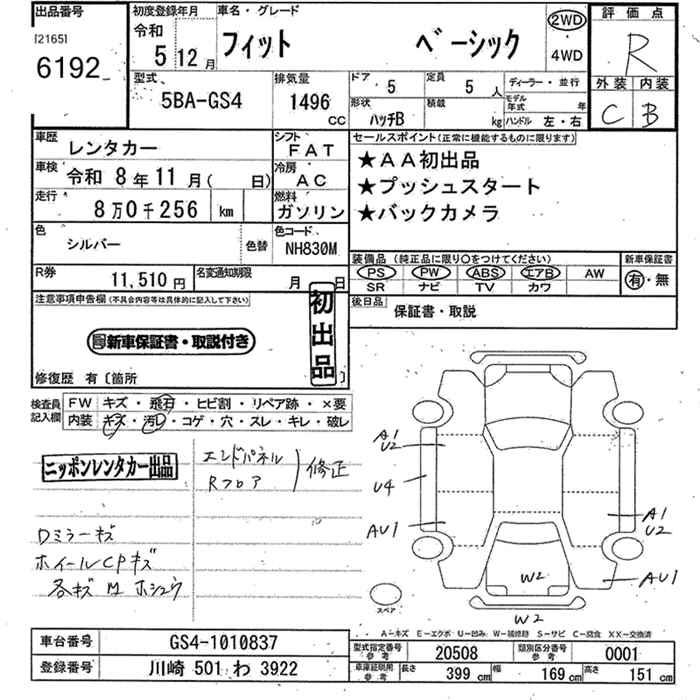 出品番号
[2165]
6192
初度登録年月
令和 5 12月
車名・グレード
フィット ベーシック
2WD
・
4WD
評価点
R
外装 内装
C B
型式
5BA-GS4
排気量
1496 CC
ドア 5
定員 5 人
ディーラー・並行
形状 ハッチB
積載 kg
モデル年式 年
ハンドル 左・右
車歴 レンタカー
シフト FAT
車検 令和 8年 11月( 日)
冷房 AC
走行 8万0千256 km
燃料 ガソリン
色 シルバー 色替
色コード NH830M
R券 11,510円
名変通知期限 月 日
セールスポイント(正常に機能するものに限ります)
★AA初出品
★プッシュスタート
★バックカメラ
装備品(純正品に限り〇をつけてください)
新車保証書
PS PW ABS エアB AW
SR ナビ TV カワ
有・無
後日品 保証書・取説
注意事項申告欄(不具合内容等は具体的に記入して下さい)
新車保証書・取説付き
初出品
修復歴 有〔箇所 〕
検査員記入欄
FW キズ・飛石・ヒビ割・リペア跡・×要
内装 キズ・汚レ・コゲ・穴・スレ・キレ・破レ
ニッポンレンタカー出品
エンドパネル
Rフロア
修正
Dミラーキズ
ホイールCPキズ
各キズ M ホシュウ
A1
U2
U4
AU1
A1
U2
AU1
W2
W2
スペア
A-キズ E-エクボ U-凹み W-補修跡 S-サビ C-腐食 XX-交換済
車台番号 GS4-1010837
登録番号 川崎 501 わ 3922
型式指定番号 参考 20508
類別区分番号 参考 0001
車庫証明用 参考 長さ 399 cm 幅 169 cm 高さ 151 cm